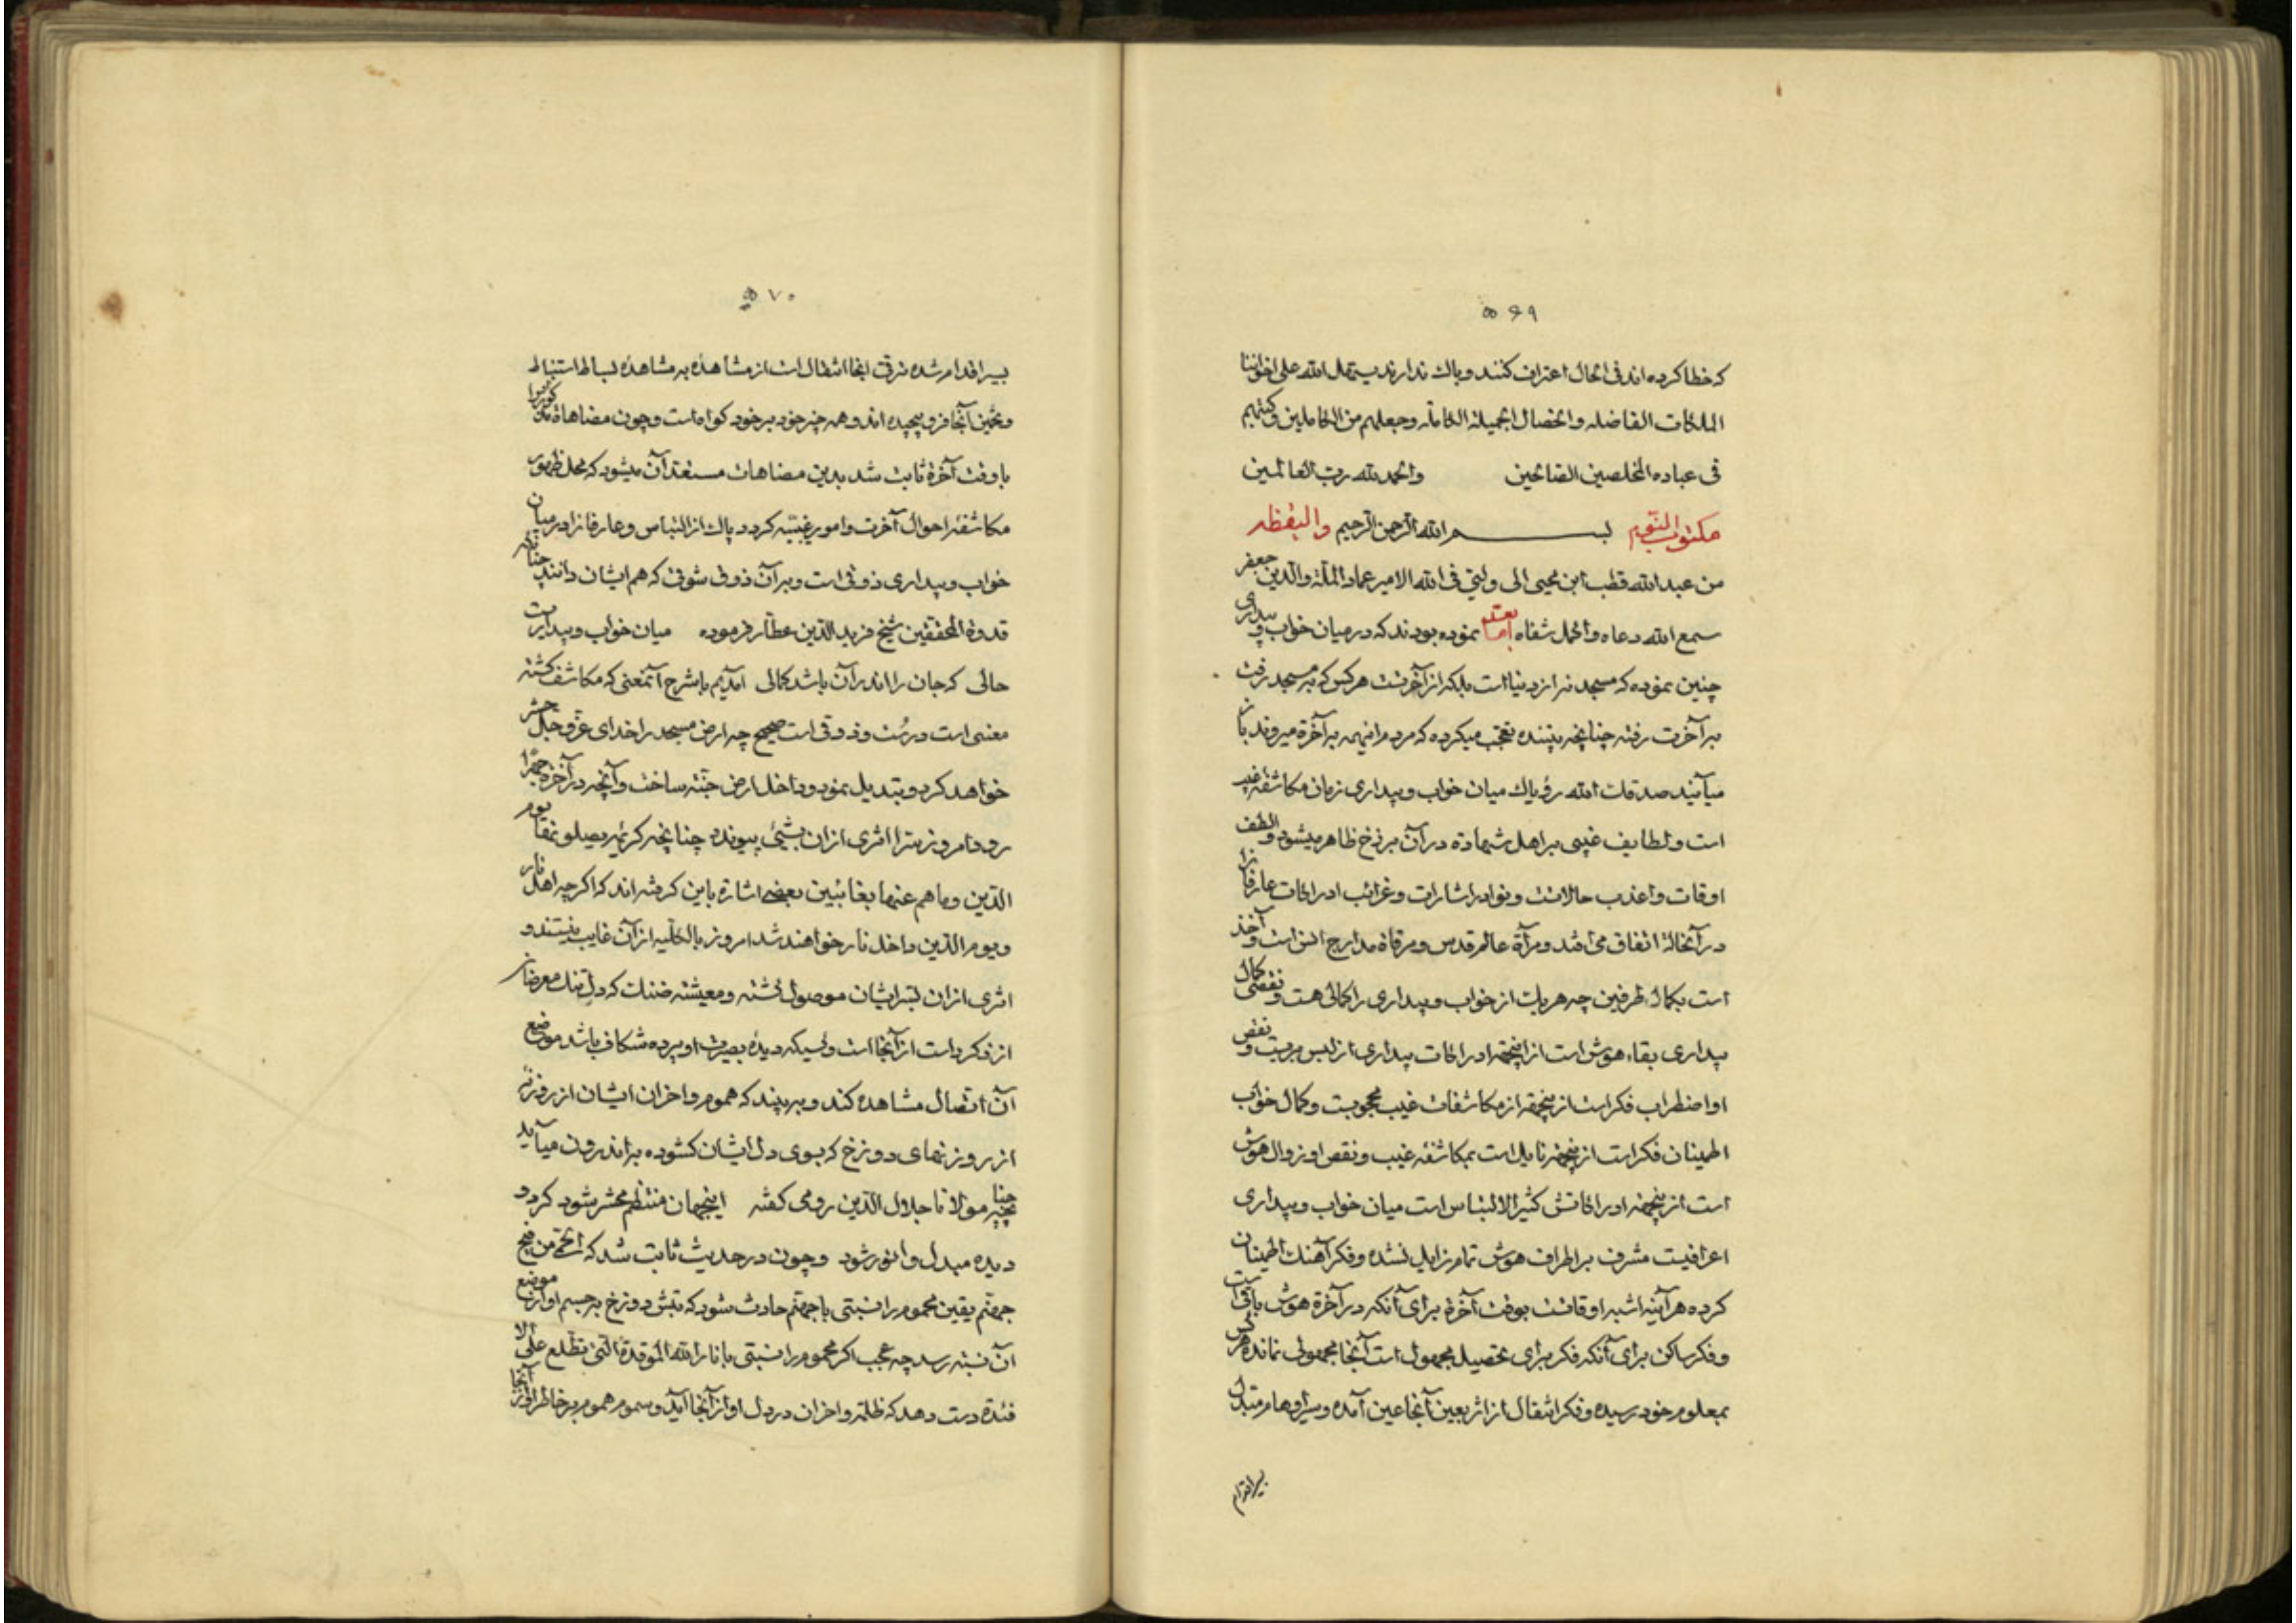 ۵۶۹
که خطا کرده اند فی الحال اعتراف کنند و باک ندارند یسهل الله علی اخواننا
الملکات الفاضله و الخصال الجمیلة الکاملة و جعلهم من الکاملین و کتبهم
فی عباده المخلصین الصالحین والحمد لله رب العالمین
مکتوب النوم بسم الله الرحمن الرحیم والیقظه
من عبدالله قطب ابن محیی الی ولیی فی الله الامیر عماد الملة والدین جعفر
سمع الله دعاه و اکمل شفاه اما بعد نموده بودند که در میان خواب و بیداری
چنین نموده که مسجد نه از دنیاست بلکه از آخرتست هر کس که به مسجد رفت
به آخرت رفته چنانچه بیننده تعجب میکرده که مردم از نیمه به آخرة میروند باز
میآیند صدقت الله رؤیاک میان خواب و بیداری زمان مکاشفه غیب
است و لطایف غیبی بر اهل شهادة در آن برزخ ظاهر میشود و الطف
اوقات و اعذب حالاتست و نوادر اشارات و غرائب ادراکات عارفانرا
در آنحالة اتفاق می افتد و مرآة عالم قدس و مرقاة مدارج انس است و آخذ
است بکمال طرفین چه هر یک از خواب و بیداری را کمالی هست و نقصی کمال
بیداری بقاء هوش است از اینجهة ادراکات بیداری از لبس مبریست و نقص
او اضطراب فکر است از اینجهة از مکاشفات غیب محجوبست و کمال خواب
اطمینان فکر است از اینجهة نایل است بمکاشفه غیب و نقص او زوال هوش
است از اینجهة ادراکاتش کثیر الالتباس است میان خواب و بیداری
اعرافیست مشرف بر اطراف هوش تمام زایل نشده و فکر آهنگ اطمینان
کرده هر آینه اشبه اوقاتست بوقت آخرة برای آنکه در آخرة هوش باقی است
و فکر ساکن برای آنکه فکر برای تحصیل مجهول است آنجا مجهولی نمانده هر کس
بمعلوم خود رسیده و فکر انتقال از اثر بعین آنجا عین آمده و سیر اوهام متبدل
بسیر اقدام
۵۷۰
بسیر اقدام شده ترقی اینجا انتقال است از مشاهده به مشاهده بساط استنباط
و تخمین آنجا فرو پیچیده اند و همه چیز خود بر خود گواه است و چون مضاهاة
با وقت آخرة ثابت شد بدین مضاهات مستعد آن میشود که محل ظهور
مکاشفه احوال آخرت و امور غیبیه گردد پاک از التباس و عارفانرا در میان
خواب و بیداری ذوقی است و بر آن ذوق شوقی که هم ایشان دانند چنانکه
قدوة المحققین شیخ فرید الدین عطار فرموده میان خواب و بیداریست
حالی که جان را اندر آن باشد کمالی آمدیم با شرح آنمعنی که مکاشف گشته
معنی است درست و ذوقی است صحیح چه ارض مسجد را خدای عز و جل حشر
خواهد کرد و تبدیل نمود و داخل ارض جنة ساخت و آنچه در آخرة چیزیرا
رو دهد امروز سرا اثری از آن بشیئی پیوندد چنانچه کریمه یصلونها یوم
الدین و ما هم عنها بغائبین بعضی اشارة باین گرفته اند که اگرچه اهل نار
و یوم الدین داخل نار خواهند شد امروز بالکلیه از آن غایب نیستند و
اثری از آن بسر ایشان موصول گشته و معیشة ضنک که دل تنک معرضان
از ذکر است از آنجا است و کسیکه دیدهٔ بصیرت او پرده شکاف باشد موضع
آن اتصال مشاهده کند و ببیند که هموم و احزان ایشان از روزنه
از روزنهای دوزخ که بسوی دل ایشان گشوده به اندرون میآید
چنانچه مولانا جلال الدین رومی گفته اینجهان منتظم محشر شود گر دو
دیده مبدل و انور شود و چون در حدیث ثابت شد که الحمی من فیح
جهنم یقین محموم را نسبتی با جهنم حادث شود که تبش دوزخ به جسم او از موضع
آن نسبة رسد چه عجب اگر محموم را نسبتی با نار الله الموقدة التی تطلع علی الا
فئدة دست دهد که ظلمة و احزان در دل او از آنجا آید و سموم هموم بر خاطر او از آنجا